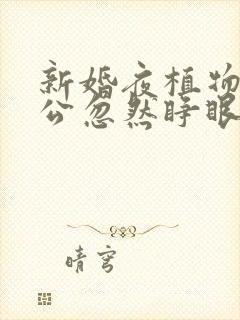 新婚夜植物
公忽然睁眼
晴穹